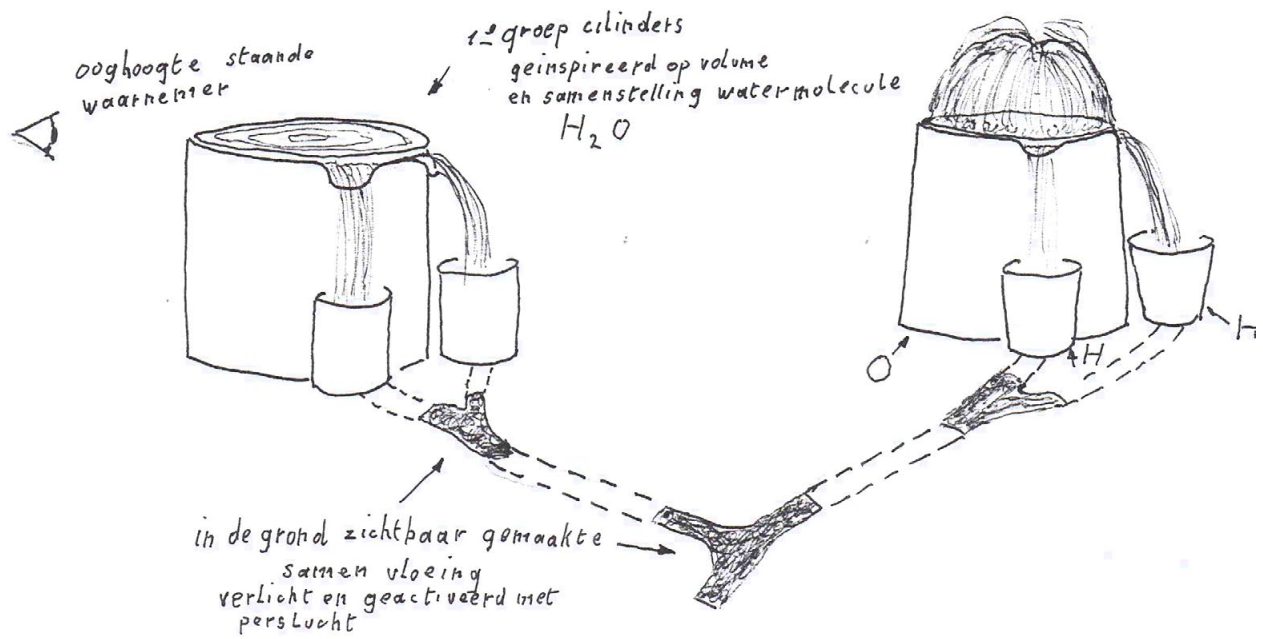 ooghoogte staande
waarnemer
1e groep cilinders
geinspireerd op volume
en samenstelling watermolecule
H₂O
O
H
H
in de grond zichtbaar gemaakte
samen vloeing
verlicht en geactiveerd met
perslucht